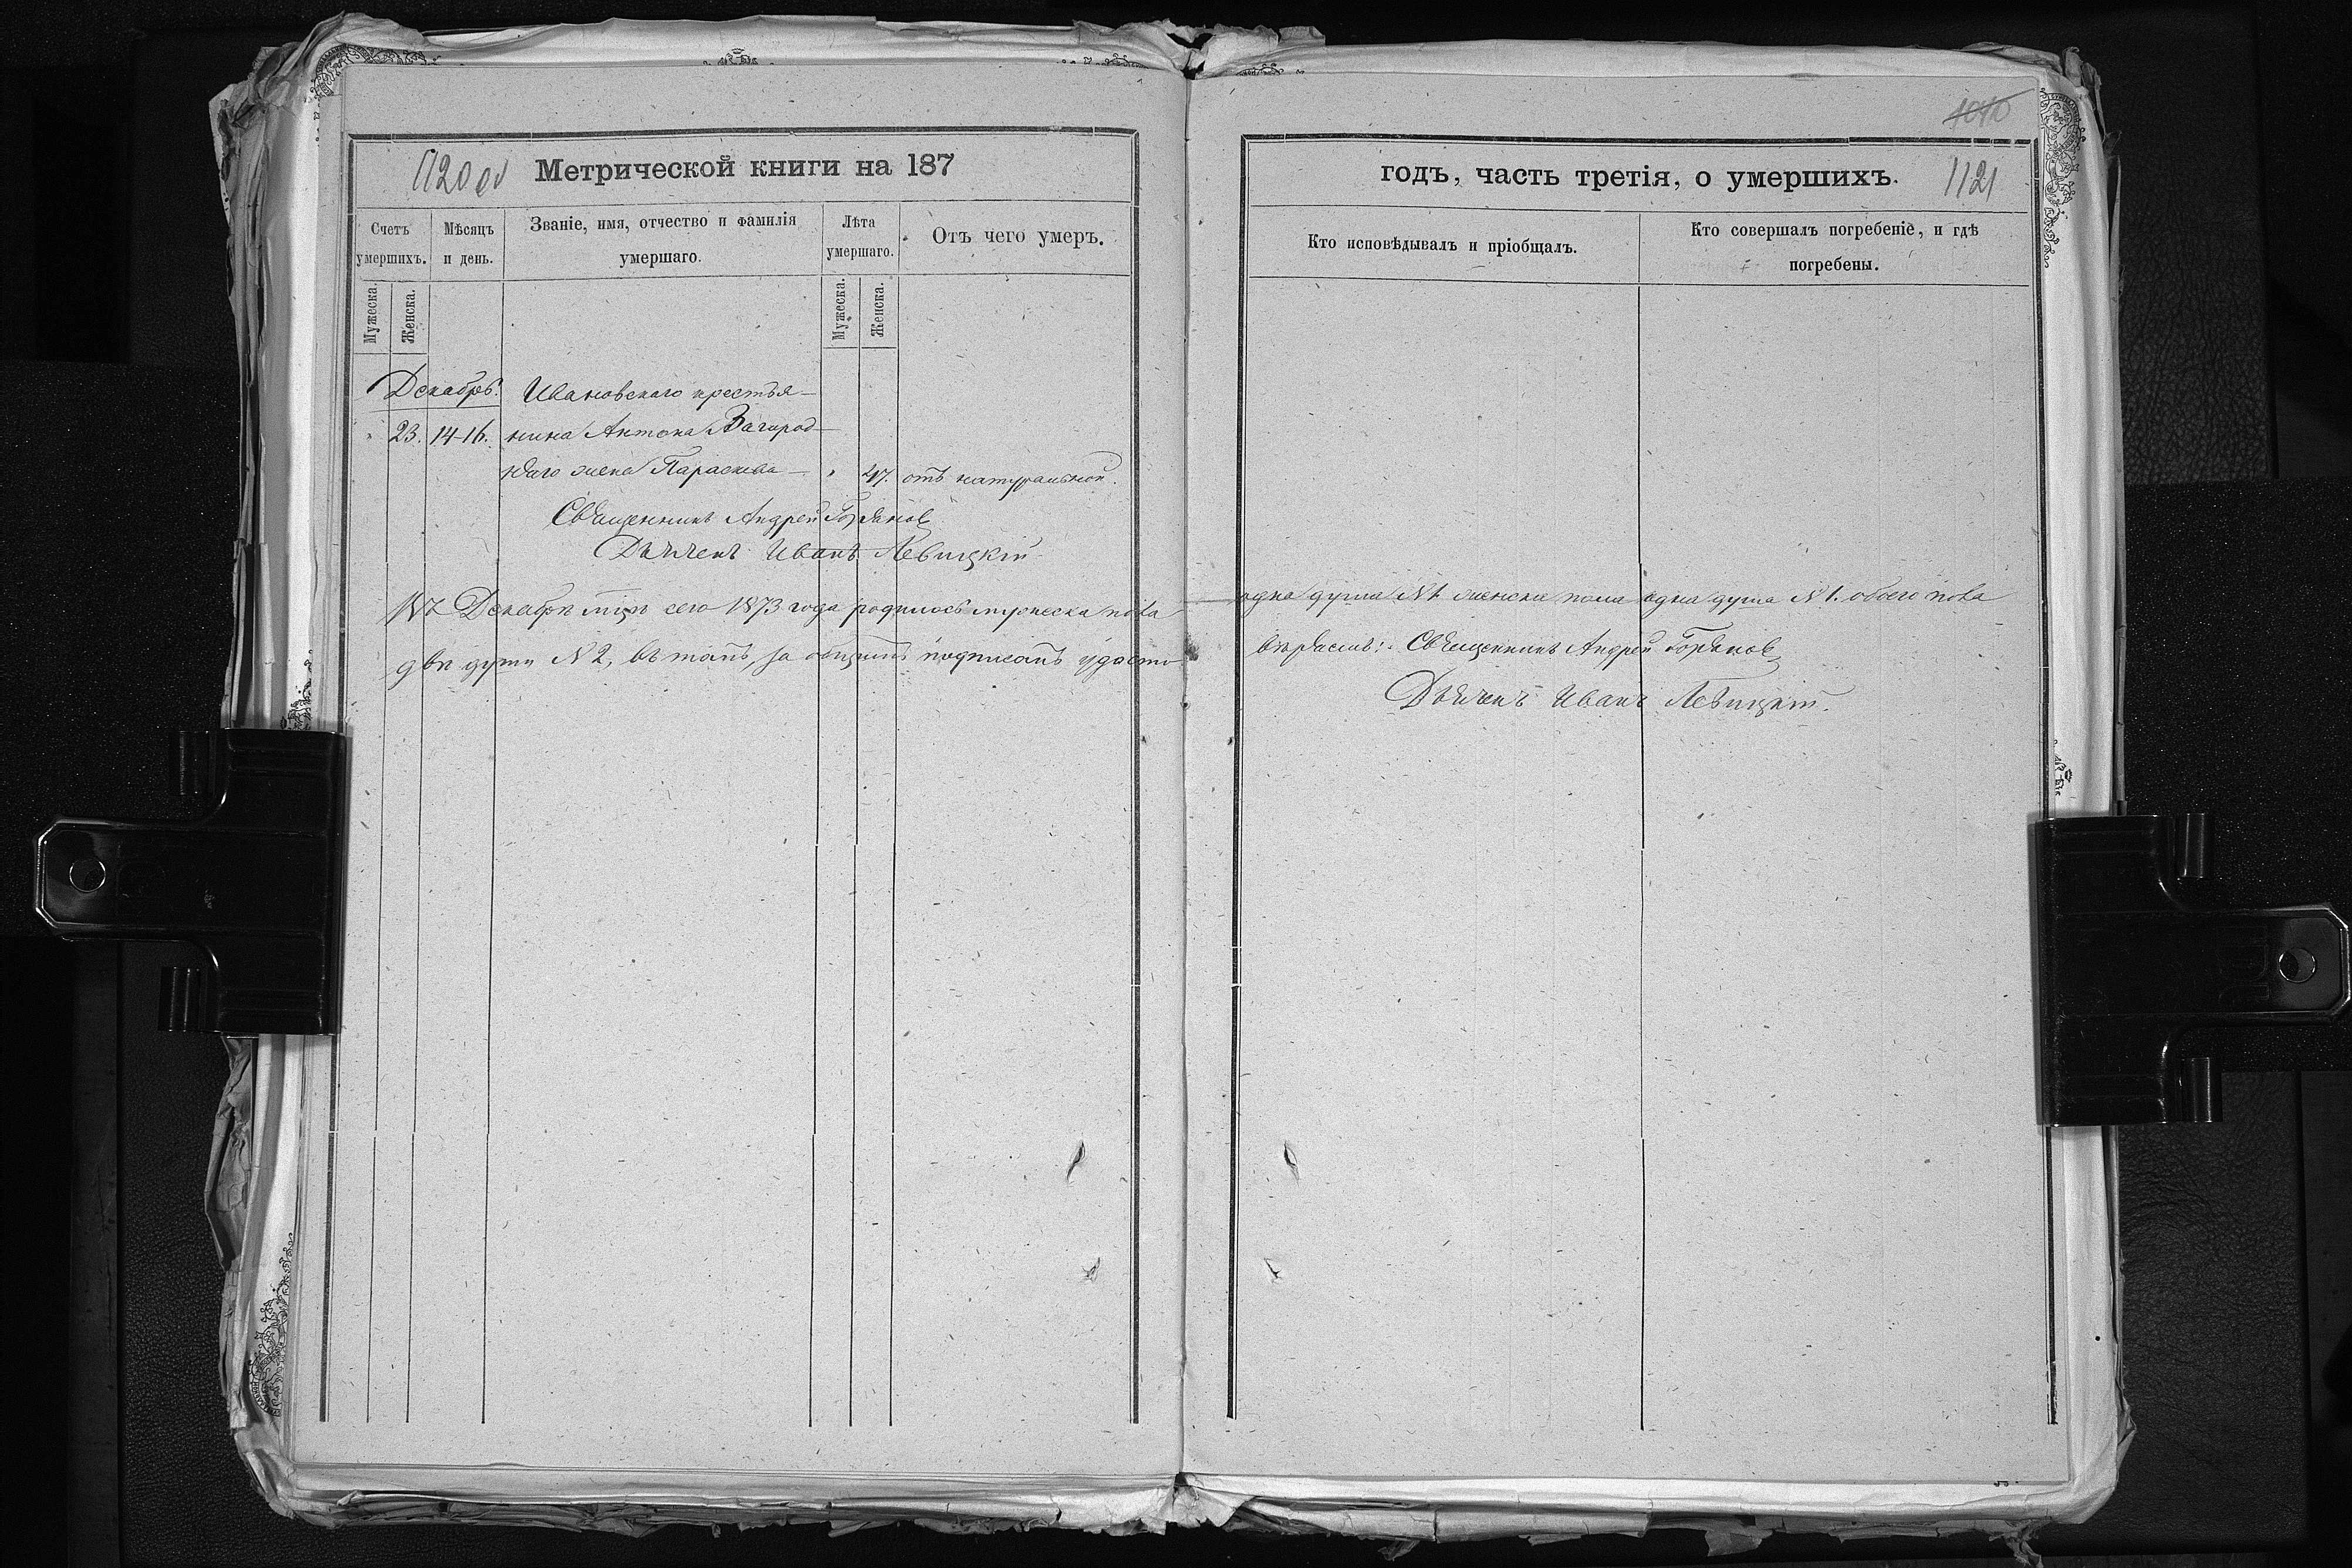 1120 об
Метрической книги на 187
Счетъ умершихъ.
Мѣсяцъ и день.
Званіе, имя, отчество и фамилія умершаго.
Лѣта умершаго.
Отъ чего умеръ.
Мужеска.
Женска.
Мужеска.
Женска.
Декабрь.
Ивановскаго крестья-
23. 14-16. нина Антона Загород-
жена Параскева - 47. отъ натуральной.
Священникъ Андрей
Дьячекъ Иванъ Левицкій
Декабрѣ сего 1873 года родилось мужеска пола
двѣ души N 2, въ томъ, за общимъ подписомъ удосто-
1121
годъ, часть третія, о умершихъ.
Кто исповѣдывалъ и пріобщалъ.
Кто совершалъ погребеніе, и гдѣ погребены.
одна душа N 1. женска пола одна душа N 1. обоего пола
Священникъ Андрей
Дьячекъ Иванъ Левицкій.